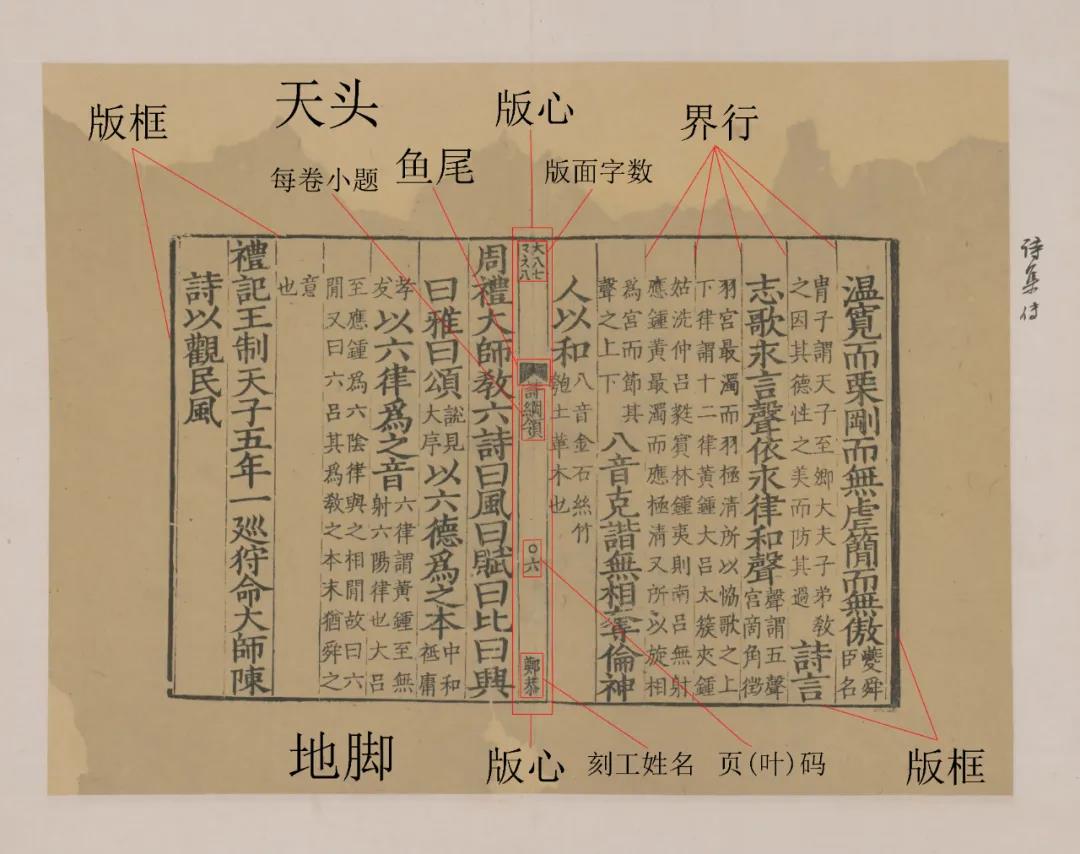 天头
版框
版心
界行
鱼尾
每卷小题
版面字数
诗集传
温寬而栗剛而無虐簡而無傲夔舜臣名
胄子謂天子至卿大夫子弟敎之因其德性之美而防其過詩言
志歌永言聲依永律和聲聲謂五聲宮商角徵
羽宮最濁而羽極清所以恊歌之上下律謂十二律黃鍾大呂太簇夾鍾
姑洗仲呂蕤賓林鍾夷則南呂無射應鍾黃最濁而應極清又所以旋相
爲宮而節其聲之上下八音克諧無相奪倫神
人以和八音金石絲竹匏土革木也
大八七
詩綱領
〇六
鄭恭
周禮大師敎六詩曰風曰賦曰比曰興
曰雅曰頌說見大序以六德爲之本中和祗庸
孝友以六律爲之音六律謂黃鍾至無射六陽律也大呂
至應鍾爲六陰律與之相間故曰六間又曰六呂其爲敎之本末猶舜之
意也
禮記王制天子五年一廵狩命大師陳
詩以觀民風
地脚
版心
刻工姓名
页(叶)码
版框